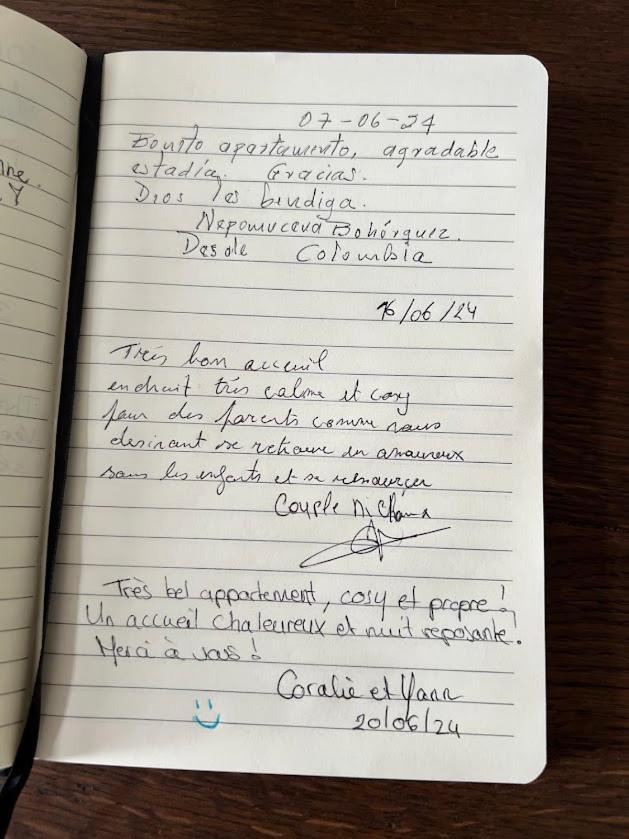 nne.
07-06-24
Bonito apartamento, agradable
estadía. Gracias.
Dios les bendiga.
Nepomuceva Bohórquez.
Desde Colombia
16/06/24
Trés bon acceuil
endruit trés calme et cosy
pour des parents comme nous
desirant se retrouve en amoureux
sans les enfants et se ressourcer
Couple
Très bel appartement, cosy et propre !
Un accueil chaleureux et nuit reposante.
Merci à vous !
Coralie et Yann
20/06/24